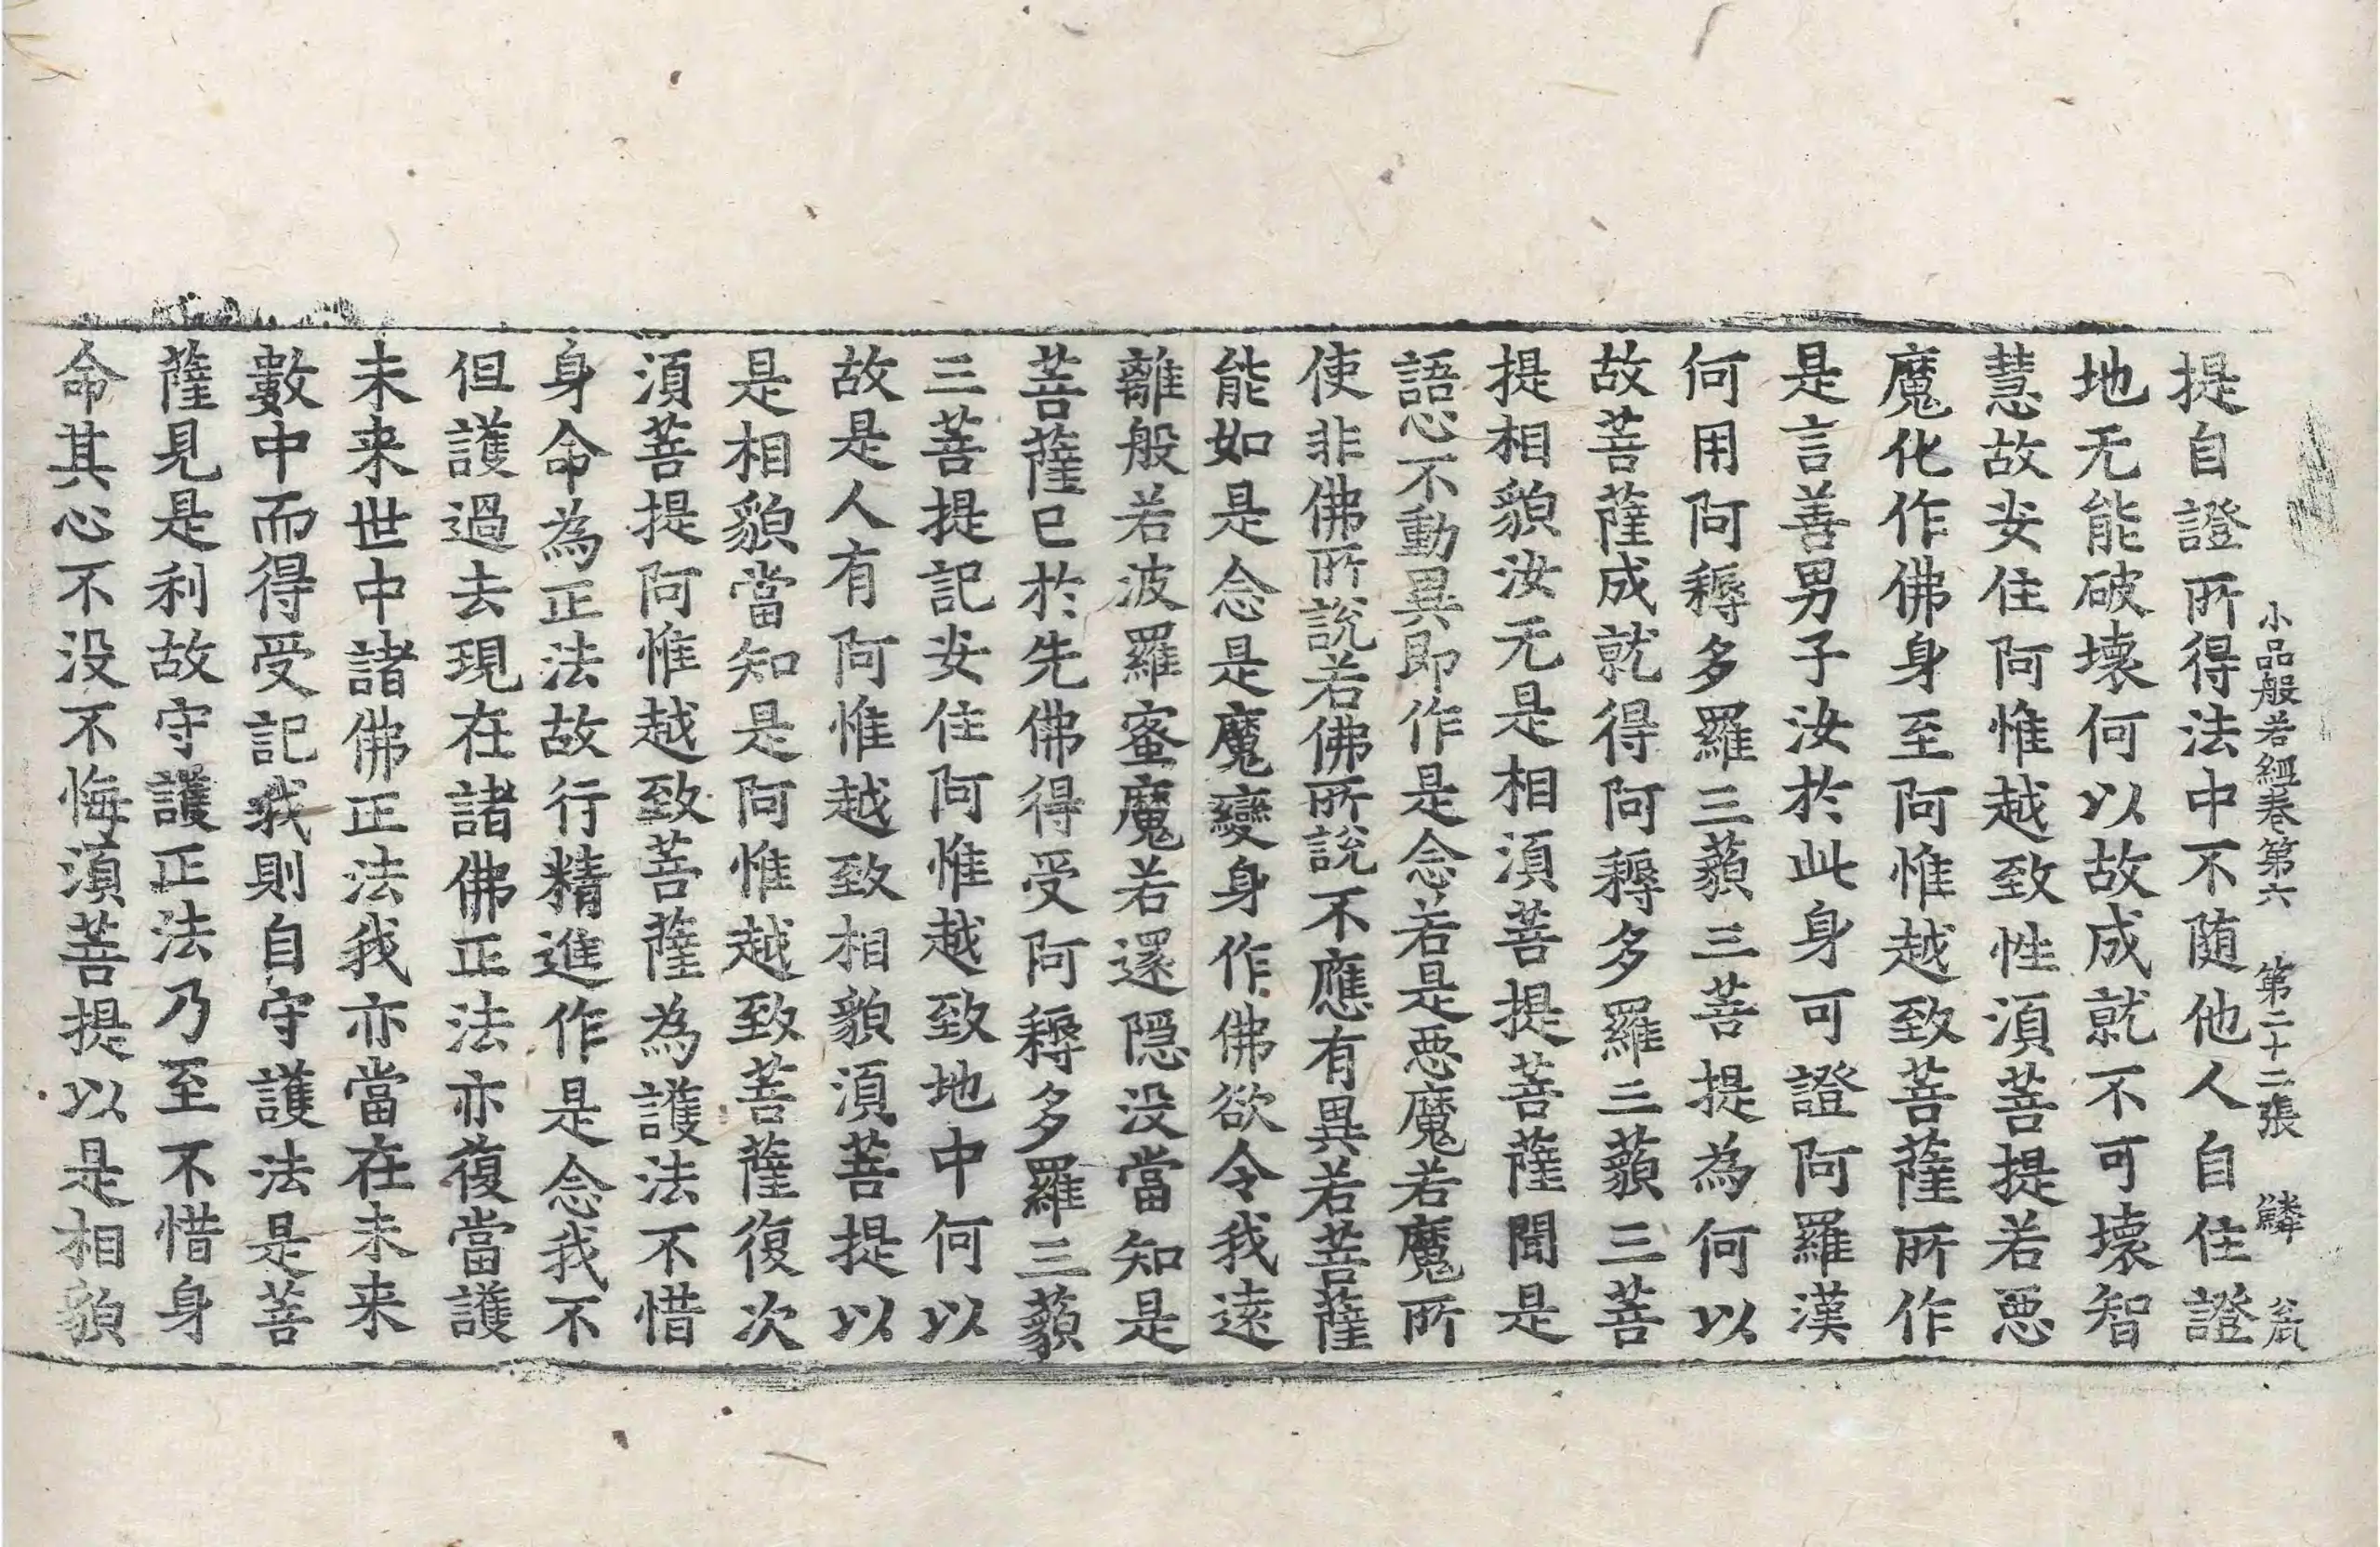 小品般若經卷第六 第二十二張 鱗
提自證所得法中不随他人自住證
地无能破壊何以故成就不可壊智
慧故安住阿惟越致性湏菩提若𢙣
魔化作佛身至阿惟越致菩薩所作
是言善男子汝於此身可證阿羅漢
何用阿耨多羅三藐三菩提為何以
故菩薩成就得阿耨多羅三藐三菩
提相貌汝无是相湏菩提菩薩聞是
語心不動異即作是念若是惡魔若魔所
使非佛所說若佛所說不應有異若菩薩
能如是念是魔變身作佛欲令我遠
離般若波羅蜜魔若還隱没當知是
菩薩已於先佛得受阿耨多羅三藐
三菩提記安住阿惟越致地中何以
故是人有阿惟越致相貌湏菩提以
是相貌當知是阿惟越致菩薩復次
湏菩提阿惟越致菩薩為護法不惜
身命為正法故行精進作是念我不
但護過去現在諸佛正法亦復當護
未来世中諸佛正法我亦當在未来
數中而得受記我則自守護法是菩
薩見是利故守護正法乃至不惜身
命其心不没不悔湏菩提以是相貌